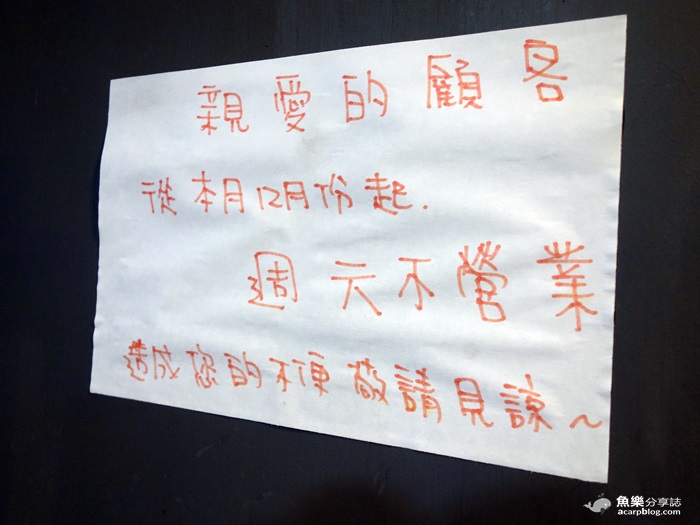 親愛的顧客
從本月12月份起.
週天不營業
造成您的不便敬請見諒~
魚樂分享誌
acarpblog.com